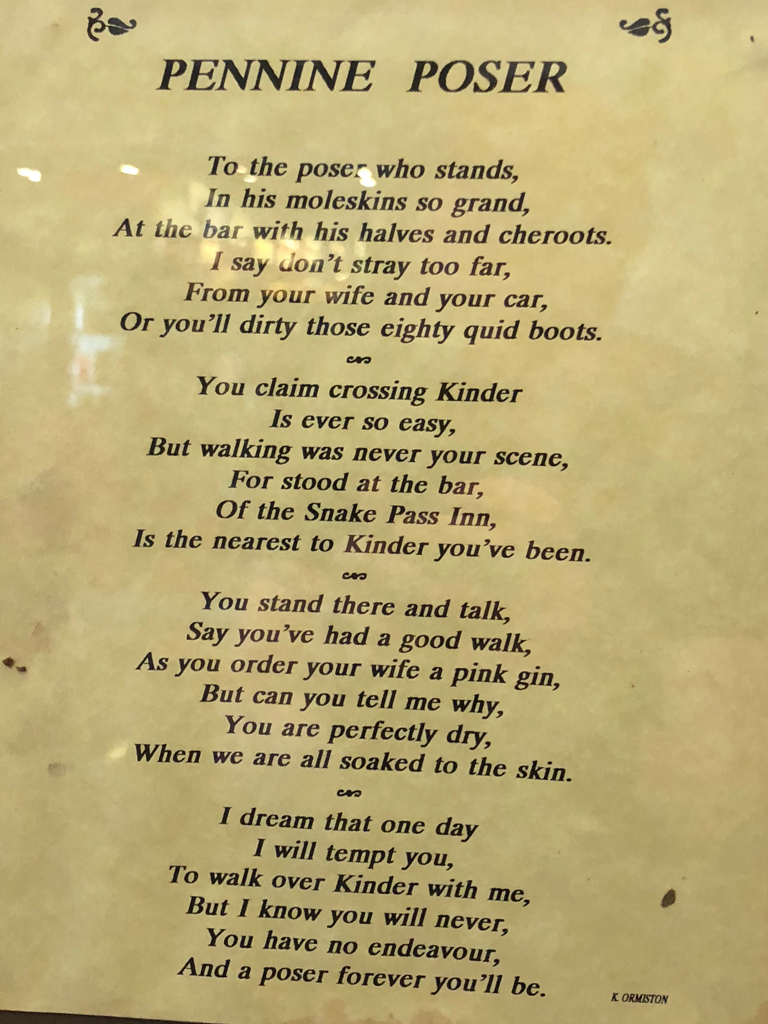 PENNINE POSER
To the poser who stands,
In his moleskins so grand,
At the bar with his halves and cheroots.
I say don't stray too far,
From your wife and your car,
Or you'll dirty those eighty quid boots.
You claim crossing Kinder
Is ever so easy,
But walking was never your scene,
For stood at the bar,
Of the Snake Pass Inn,
Is the nearest to Kinder you've been.
You stand there and talk,
Say you've had a good walk,
As you order your wife a pink gin,
But can you tell me why,
You are perfectly dry,
When we are all soaked to the skin.
I dream that one day
I will tempt you,
To walk over Kinder with me,
But I know you will never,
You have no endeavour,
And a poser forever you'll be.
K. ORMISTON